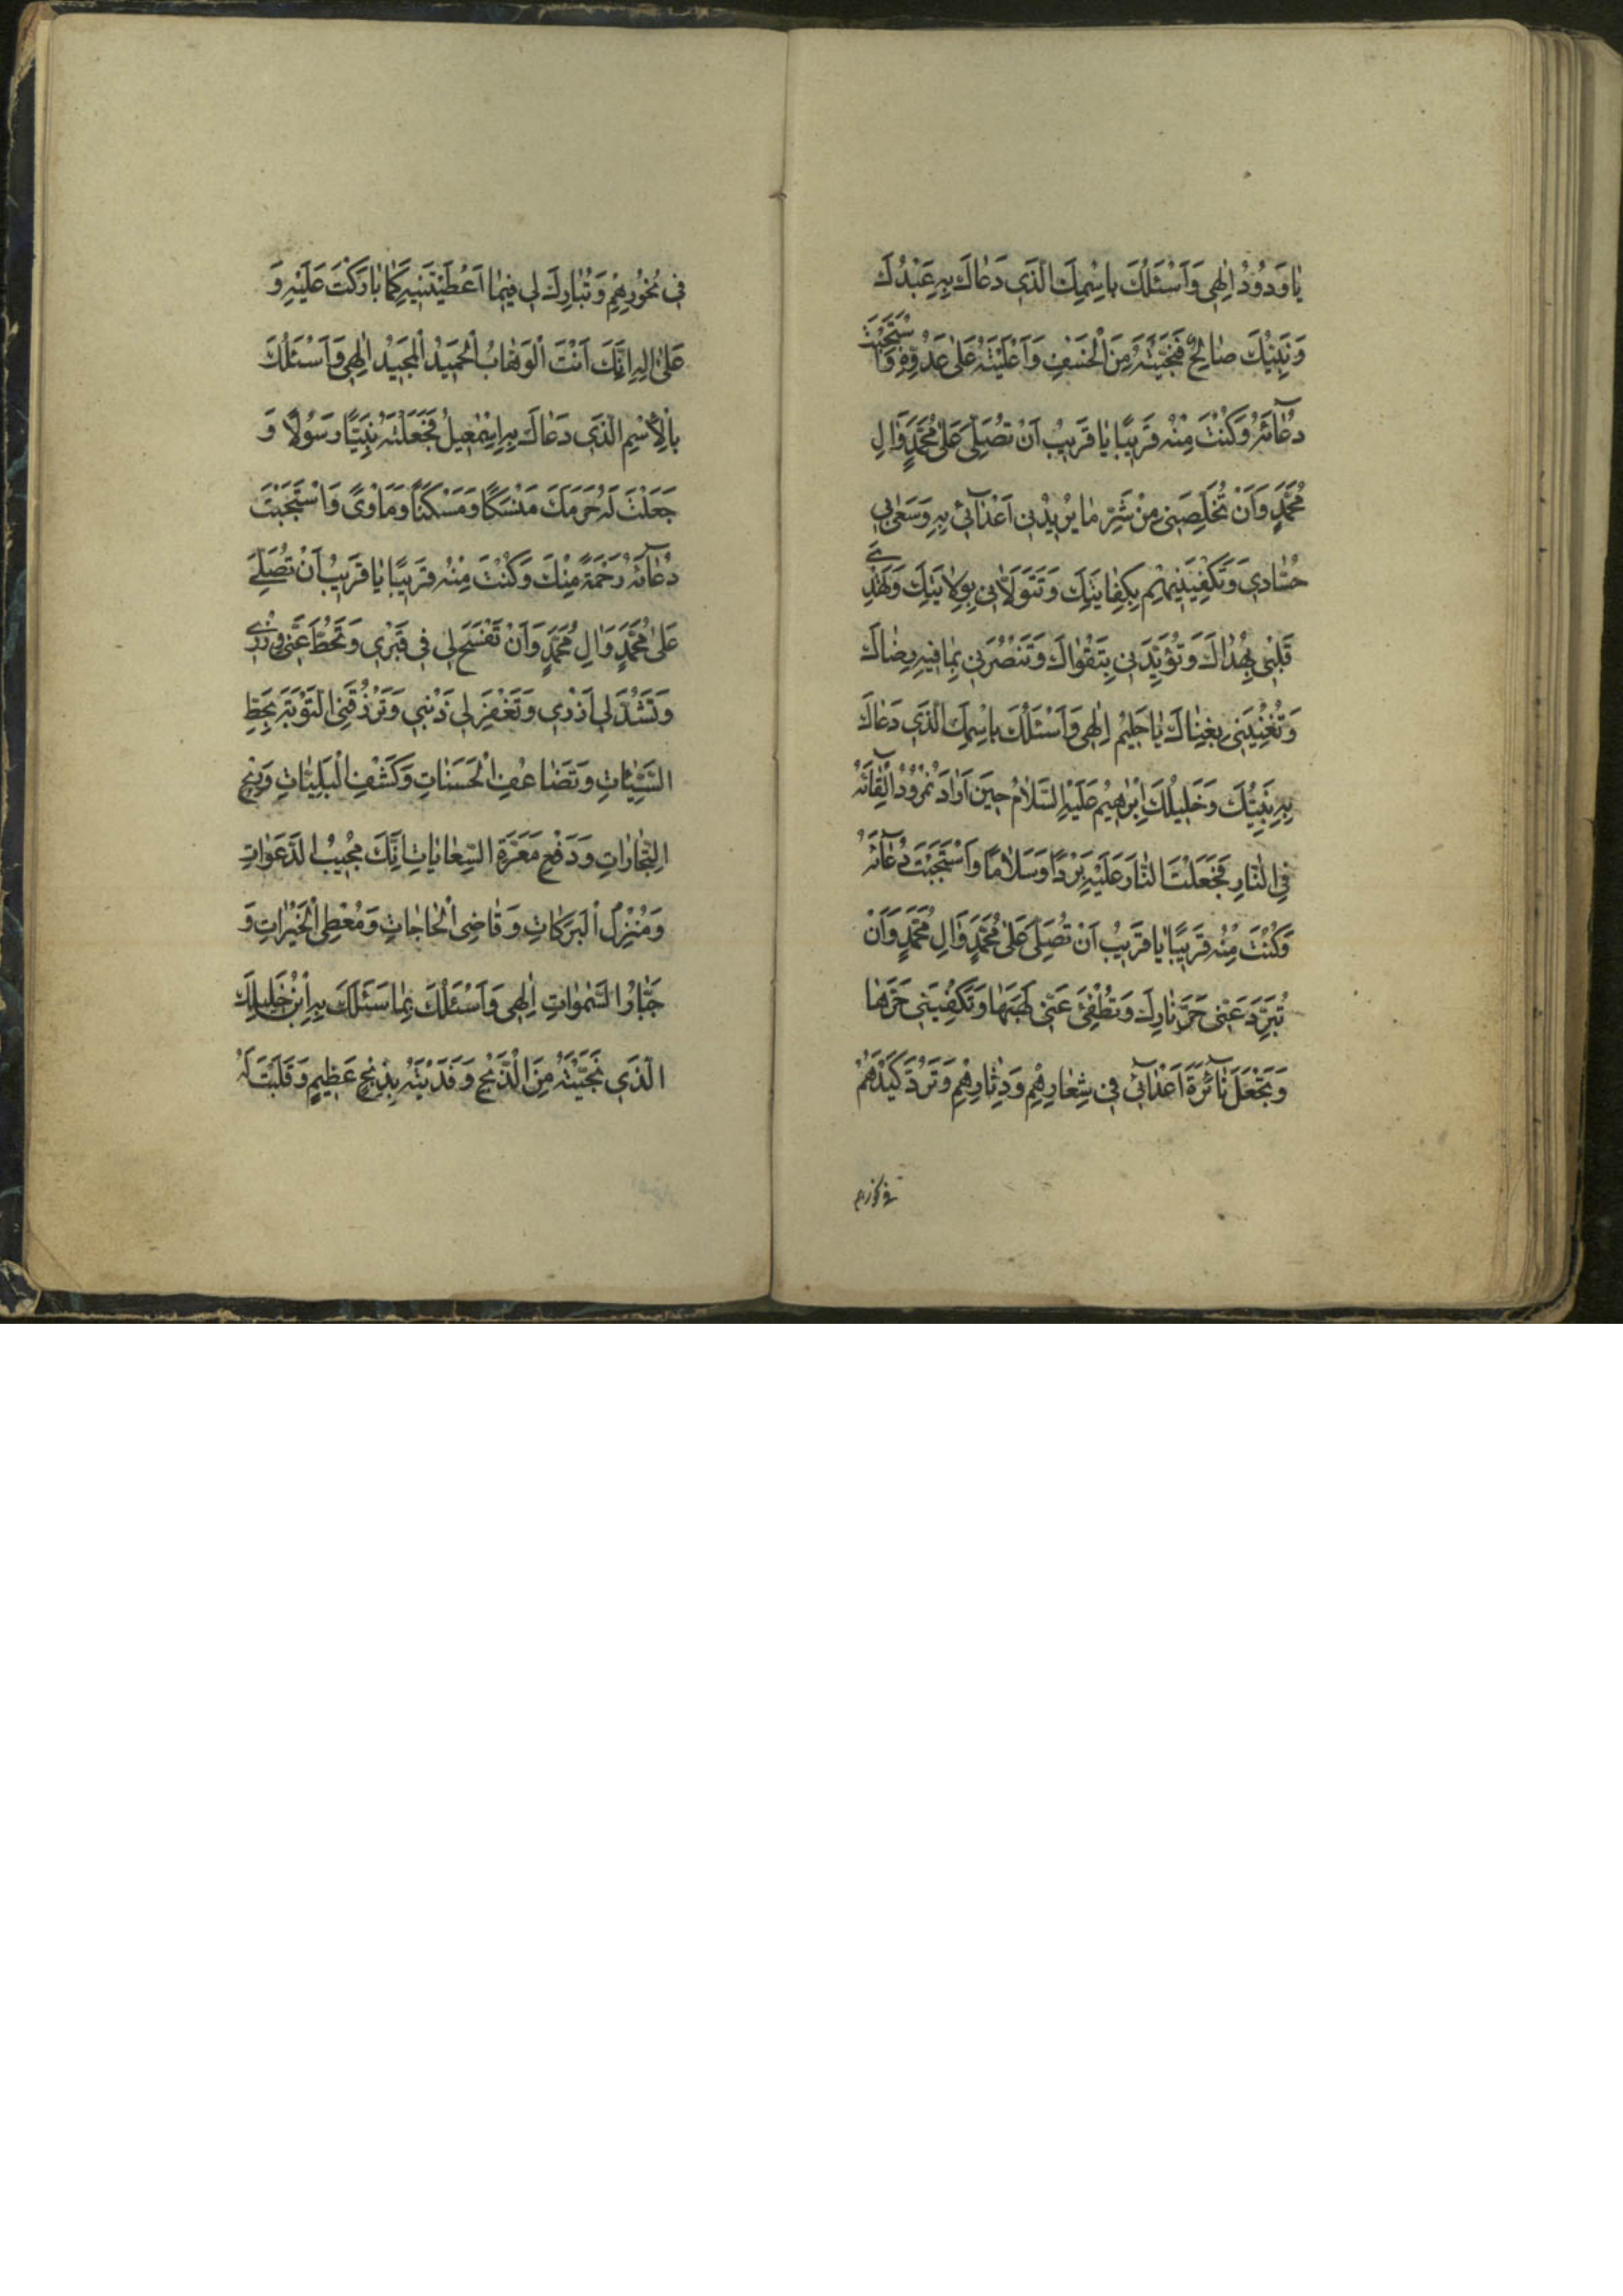 يٰا وَدُودُ اِلٰهِى وَاَسْئَلُكَ بِاسْمِكَ الَّذِى دَعٰاكَ بِهِ عَبْدُكَ
وَنَبِيُّكَ صٰالِحٌ فَنَجَّيْتَهُ مِنَ الْخَسْفِ وَاَعْلَيْتَهُ عَلىٰ عَدُوِّهِ وَاسْتَجَبْتَ
دُعٰآئَهُ وَكُنْتَ مِنْهُ قَرِيبًا يٰا قَرِيبُ اَنْ تُصَلِّىَ عَلىٰ مُحَمَّدٍ وَاٰلِ
مُحَمَّدٍ وَاَنْ تُخَلِّصَنِى مِنْ شَرِّ مٰا يُرِيدُنِى اَعْدٰآئِى بِهِ وَسَعٰى بِى
حُسّٰادِى وَتَكْفِيَنِيهِمْ بِكِفٰايَتِكَ وَتَتَوَلّٰانِى بِوِلٰايَتِكَ وَتَهْدِىَ
قَلْبِى بِهُدٰاكَ وَتُؤَيِّدَنِى بِتَقْوٰاكَ وَتَنْصُرَنِى بِمٰا فِيهِ رِضٰاكَ
وَتُغْنِيَنِى بِغِنٰاكَ يٰا حَلِيمُ اِلٰهِى وَاَسْئَلُكَ بِاسْمِكَ الَّذِى دَعٰاكَ
بِهِ نَبِيُّكَ وَخَلِيلُكَ اِبْرٰهِيمُ عَلَيْهِ السَّلٰامُ حِينَ اَرٰادَ نُمْرُودُ اِلْقٰآئَهُ
فِى النّٰارِ فَجَعَلْتَ النّٰارَ عَلَيْهِ بَرْدًا وَسَلٰامًا وَاسْتَجَبْتَ دُعٰآئَهُ
وَكُنْتَ مِنْهُ قَرِيبًا يٰا قَرِيبُ اَنْ تُصَلِّىَ عَلىٰ مُحَمَّدٍ وَاٰلِ مُحَمَّدٍ وَاَنْ
تُبَرِّدَ عَنِّى حَرَّ نٰارِكَ وَتُطْفِئَ عَنِّى لَهَبَهٰا وَتَكْفِيَنِى حَرَّهٰا
وَتَجْعَلَ نٰآئِرَةَ اَعْدٰآئِى فِى شِعٰارِهِمْ وَدِثٰارِهِمْ وَتَرُدَّ كَيْدَهُمْ
فى نحورهم
فِى نُحُورِهِمْ وَتُبٰارِكَ لِى فِيمٰا اَعْطَيْتَنِيهِ كَمٰا بٰارَكْتَ عَلَيْهِ وَ
عَلىٰ اٰلِهِ اِنَّكَ اَنْتَ الْوَهّٰابُ الْحَمِيدُ الْمَجِيدُ اِلٰهِى وَاَسْئَلُكَ
بِالْاِسْمِ الَّذِى دَعٰاكَ بِهِ اِسْمٰعِيلُ فَجَعَلْتَهُ نَبِيًّا وَرَسُولًا وَ
جَعَلْتَ لَهُ حَرَمَكَ مَنْسَكًا وَمَسْكَنًا وَمَاْوًى وَاسْتَجَبْتَ
دُعٰآئَهُ رَحْمَةً مِنْكَ وَكُنْتَ مِنْهُ قَرِيبًا يٰا قَرِيبُ اَنْ تُصَلِّىَ
عَلىٰ مُحَمَّدٍ وَاٰلِ مُحَمَّدٍ وَاَنْ تَفْسَحَ لِى فِى قَبْرِى وَتَحُطَّ عَنِّى وِزْرِى
وَتَشُدَّ لِى اَزْرِى وَتَغْفِرَ لِى ذَنْبِى وَتَرْزُقَنِى التَّوْبَةَ بِحَطِّ
السَّيِّئٰاتِ وَتَضٰاعُفِ الْحَسَنٰاتِ وَكَشْفِ الْبَلِيّٰاتِ وَرِبْحِ
التِّجٰارٰاتِ وَدَفْعِ مَعَرَّةِ السِّعٰايٰاتِ اِنَّكَ مُجِيبُ الدَّعَوٰاتِ
وَمُنْزِلُ الْبَرَكٰاتِ وَقٰاضِى الْحٰاجٰاتِ وَمُعْطِى الْخَيْرٰاتِ وَ
جَبّٰارُ السَّمٰوٰاتِ اِلٰهِى وَاَسْئَلُكَ بِمٰا سَئَلَكَ بِهِ ابْنُ خَلِيلِكَ
الَّذِى نَجَّيْتَهُ مِنَ الذَّبْحِ وَفَدَيْتَهُ بِذِبْحٍ عَظِيمٍ وَقَلَبْتَ لَهُ